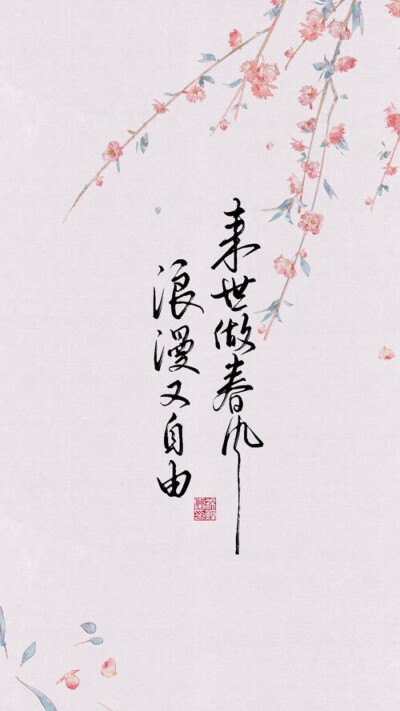 来世做春风
浪漫又自由